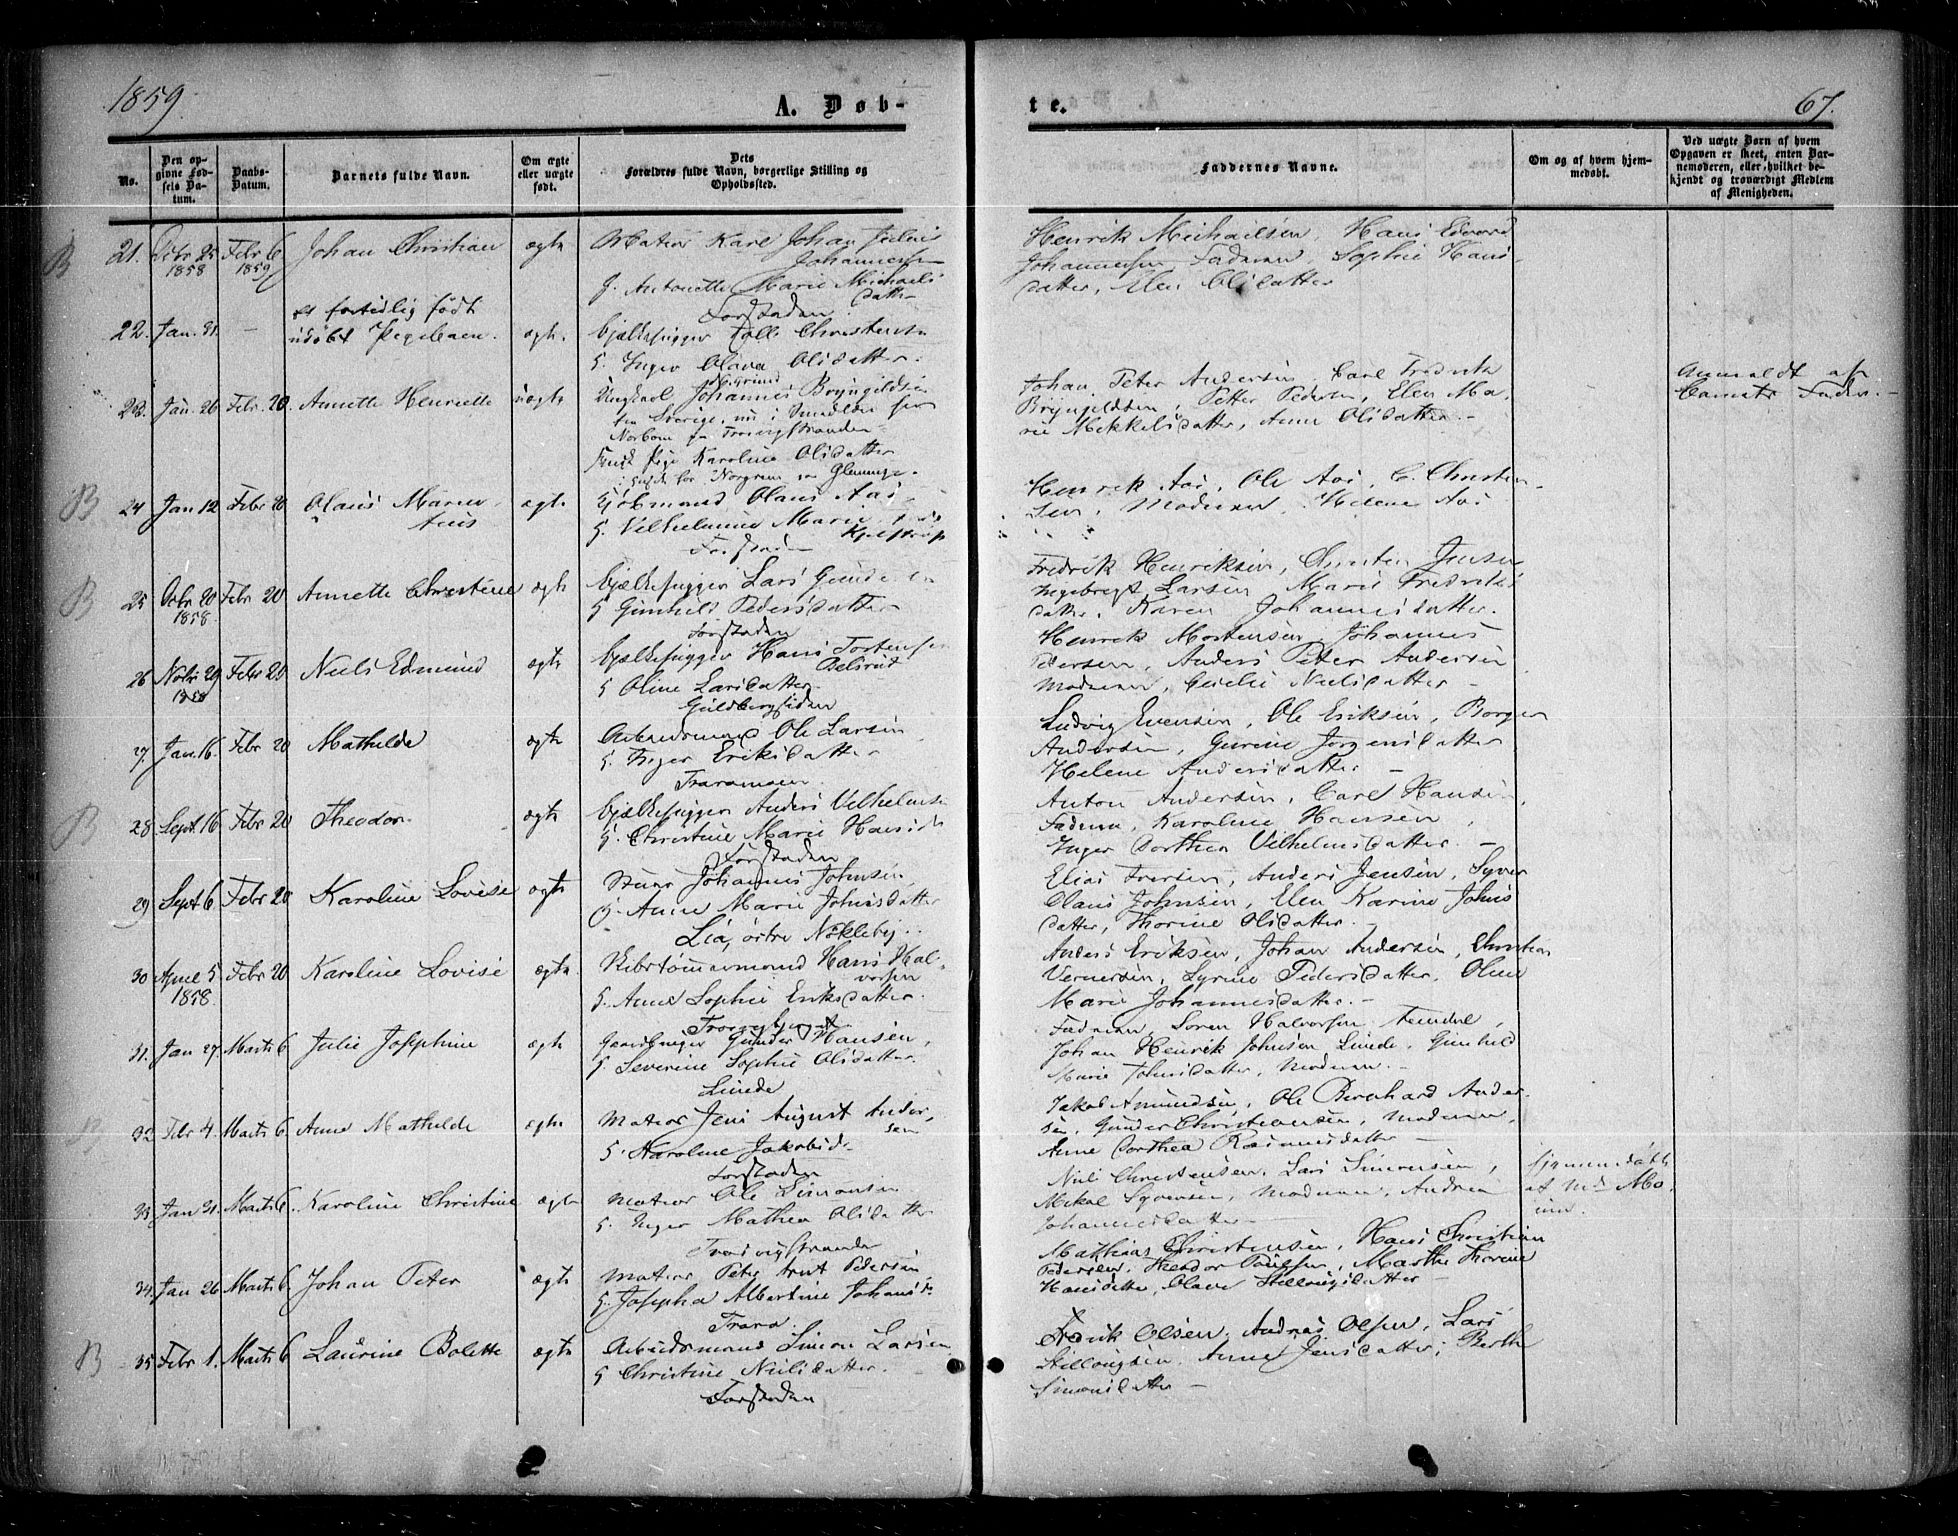 1859
A. Døb-
No.
Den op-
givne Fød-
sels Da-
tum.
Daabs-
Datum.
Barnets fulde Navn.
Om ægte
eller uægte
født.
Dets
Forældres fulde Navn, borgerlige Stilling og
Opholdssted.
B
21.
Febr 6
1858
1859
Johan Christian
ægte
Matros Karl Johan Julius
Johannesen
g. Antonette Marie Michaels
datter
Forstaden
22. Jan. 31. —
et fortidlig født
udøbt Pigebarn.
ægte.
Bjælkehugger Christensen
g. Inger Olava Olsdatter.
23. Jan. 26 Febr. 20. Annette Henriette uægte
Ungkarl Johannes Bryngildsen
fra Sverige, nu i
Pige Karoline Olsdatter
B
24 Jan 12 Febr 20 Olaus Marius
Aas
ægte
Kjøbmand Olaus Aas
g. Vilhelmine Marie
Forstaden
B
25 Octbr 20 Febr 20 Annette Christine ægte
1858
Bjælkehugger Lars
g Gunhild Pedersdatter
Forstaden
26 Novbr 29 Febr 20 Niels Edmund ægte
1858
Bjælkehugger Hans Torstensen
g Oline Larsdatter
Guldbergsiden
27 Jan. 16. Febr 20 Mathilde ægte
Arbeidsmand Ole Larsen
g. Inger Eriksdatter
Traramoen.
B
28. Sept. 16 Febr 20 Theodor. ægte
Bjælkehugger Anders Vilhelmsen
g. Christine Marie Hansd
Forstaden
29 Sept 6 Febr 20 Karoline Lovise ægte
Johannes Johnsen
g. Anne Marie Johnsdatter
Lia, østre Nøkleby.
30 April 5 Febr 20 Karoline Lovise ægte
1858.
Skibstømmermand Hans Hal-
vorsen
g. Anne Sophie Eriksdatter.
31. Jan 27. Marts 6. Julie Josephine ægte
Gaardbruger Gunder Hansen,
g. Severine Sophie Olsdatter.
Lunde
32 Febr 4. Marts 6. Anne Mathilde ægte
Matros Jens August Ander
sen
g. Karoline Jakobsd
Forstaden
33 Jan 31. Marts 6. Karoline Christine ægte
Matros Ole Simonsen
g. Inger Mathea Olsdatter
Trosvigstranden
34. Jan 26. Marts 6. Johan Peter ægte
Matros Peter Arnt Pedersen
g. Josepha Albertine Johansd.
Trara.
B
35 Febr 1. Marts 6 Laurine Bolette ægte
Arbeidsmand Simon Larsen
g Christine Nielsdatter.
Forstaden
te.
67.
Faddernes Navne.
Om og af hvem hjem-
medøbt.
Ved uægte Barn af hvem
Opgaven er skeet, enten Bar-
nemoderen, eller hvilket be-
kjendt og troværdigt Medlem
af Menigheden.
Henrik Michaelsen Hans Edvard
Johannesen Faderen, Sophie Hans
datter, Elen Olsdatter
Johan Peter Andersen, Carl Fredrik
Bryngildsen, Petter Pedersen, Elen Ma
rie Mikkelsdatter, Anne Olsdatter. —
Anmeldt af
Barnets Fader. —
Henrik Aas, Ole Aas, C. Christen-
sen, Moderen, Helene Aas
Fredrik Henriksen, Jensen
Ingebregt Larsen, Marie Fredriks
datter, Karen Johannesdatter.
Henrik Mortensen, Johannes
Pedersen, Anders Peter Andersen
Moderen, Nielsdatter —
Ludvig Evensen, Ole Eriksen, Borger
Andersen, Gurine Jørgensdatter
Helene Andersdatter —
Anton Andersen, Carl Hansen,
Faderen, Karoline Hansen,
Inger Dorthea Vilhelmsdatter. —
Elias Iversen, Anders Jensen, Syver
Olaus Johnsen, Elen Karine Johns
datter, Thorine Olsdatter. —
Anders Eriksen, Johan Andersen, Christian
Vernersen, Syrine Pedersdatter, Oline
Marie Johannesdatter. —
Faderen, Soren Halvorsen
Johan Henrik Johnsen Lunde, Gunhild
Marie Johnsdatter, Moderen. —
Jakob Amundsen, Ole Bernhard Ander
sen, Gunder Christiansen, Moderen,
Anne Dorthea Rasmusdatter —
Niels Christensen, Lars Simonsen,
Mikal Syversen, Moderen, Andrea
Johannesdatter —
Hjemmedøbt
af Md Mo
Mathias Christensen, Hans Christian
Pedersen, Theodor Poulsen, Marthe Thorine
Hansdatter, Olave Stillougsdatter —
Fredrik Olsen, Andreas Olsen, Lars
Stillougsen, Anne Jensdatter, Berthe
Simonsdatter —